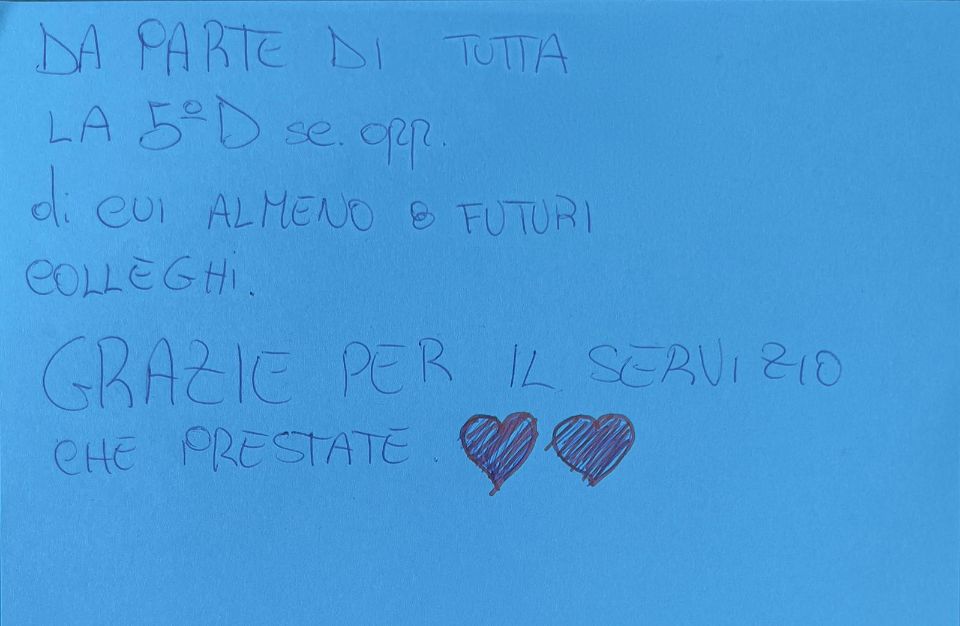 DA PARTE DI TUTTA
LA 5ºD se. opp.
di CUI ALMENO 8 FUTURI
COLLEGHi.
GRAZIE PER IL SERVIZIO
CHE PRESTATE.